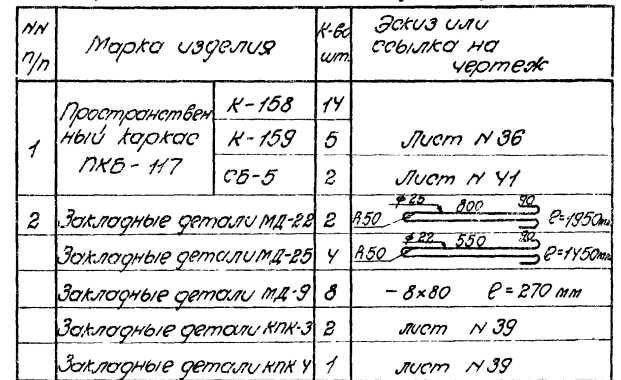 NN п/п Марка изделия К-во шт. Эскиз или ссылка на чертеж
1 Пространствен ный каркас ПКБ-117 К-158 14
К-159 5 Лист N 36
СБ-5 2 Лист N 41
2 Закладные детали МД-22 2 R50 ϕ25 800 90 ℓ=1950мм
Закладные детали МД-25 4 R50 ϕ22 550 90 ℓ=1450мм
Закладные детали МД-9 8 - 8×80 ℓ=270 мм
Закладные детали КПК-3 2 лист N 39
Закладные детали КПК 4 1 лист N 39